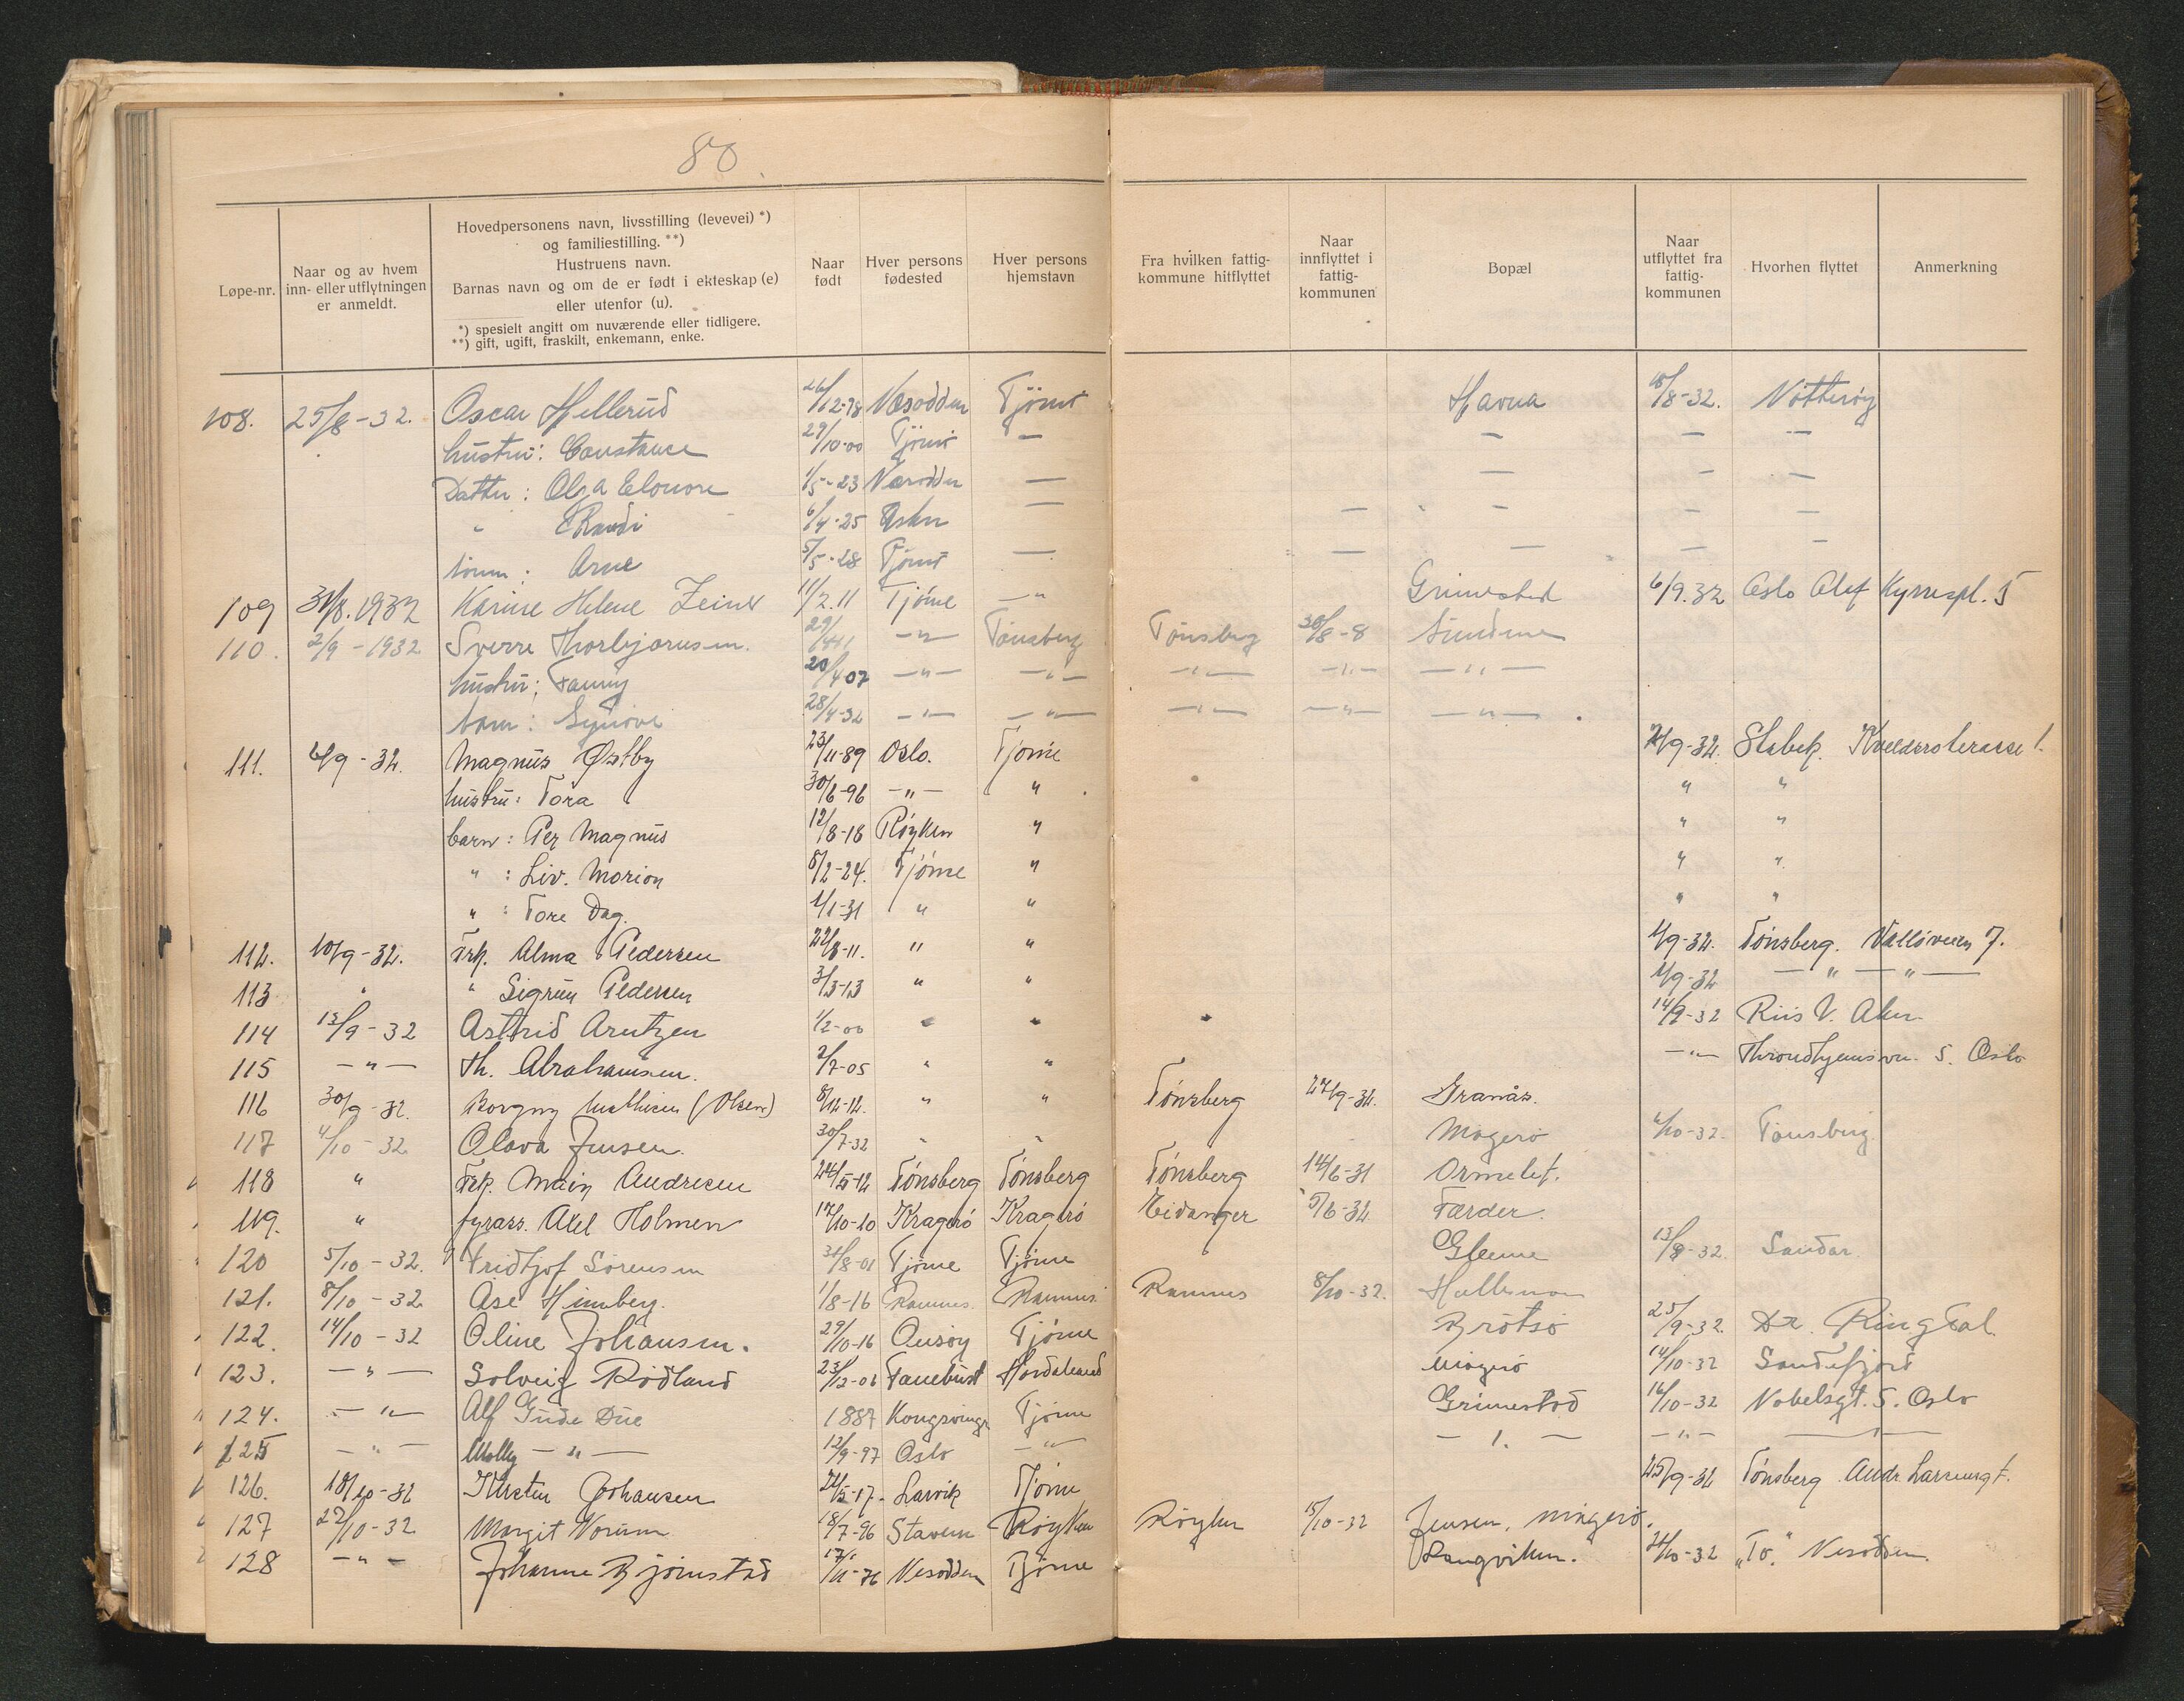 80.
Løpe-nr. | Naar og av hvem inn- eller utflytningen er anmeldt. | Hovedpersonens navn, livsstilling (levevei) *) og familiestilling. **) Hustruens navn. Barnas navn og om de er født i ekteskap (e) eller utenfor (u). *) spesielt angitt om nuværende eller tidligere. **) gift, ugift, fraskilt, enkemann, enke. | Naar født | Hver persons fødested | Hver persons hjemstavn | Fra hvilken fattig-kommune hitflyttet | Naar innflyttet i fattig-kommunen | Bopæl | Naar utflyttet fra fattig-kommunen | Hvorhen flyttet | Anmerkning
108. 25/8-32. Oscar Hellerud 26/12-78 Næsodden Tjöme Havna 18/8-32. Nötteröy
hustru: Constance 29/10-00 Tjöme — — — —
Datter: Olga Elonore 1/5-23 Næsodden — — — —
" Randi 6/4-25 Asker — — — — —
sönn: Arne 5/5-28 Tjöme — — — — —
109 31/8.1932 Karine Helene Zeiner 11/2.11 Tjöme —"— Grimestad 6/9.32 Oslo Olef Kyrrespl. 5
110. 2/9-1932 Sverre Thorbjørnsen. —"— Tönsberg Tönsberg 30/8-8
hustru: Fanny 20/4 07 —"— —"— —"— —"— —"—
barn: Synöve 28/4-32 —"— —"— —"— —"— —"—
111. 6/9-32. Magnus Østby 23/11-89 Oslo. Tjöme Stabek.
hustru: Tora 30/6-96 —"— " " "
barn: Per Magnus 12/8-18 Röyken " " "
" : Liv. Morion 8/2-24. Tjöme " " "
" : Tore Dag. 1/1-31 " " " "
112. 10/9-32. Frk. Alma Pedersen 22/8-11. " " 1/9-32. Tönsberg. Vallöveien 7.
113 " " Sigrun Pedersen 3/3-13 " " 1/9-32 —"—"—
114 13/9-32 Astrid Arntzen 1/2-00 " " " 14/9-32 Riis V. Aker
115 —"— Th. Abrahamsen. 2/7-05 " " —"— Throndhjemsvn. 5. Oslo
116 30/9-32. Borgny Mathisen (Olsen) 8/12-12. " " Tönsberg 27/9-32. Granås.
117 4/10-32 Olava Jensen. 30/7-32 " " Magerö 4/10-32. Tönsberg.
118 " Frk. Maiy Andresen 24/5-12 Tönsberg Tönsberg Tönsberg 14/6-31 Ormelet.
119. " fyrass. Axel Holmen 17/10-10 Kragerö Kragerö Eidanger 5/6-32 Færder.
120 5/10-32. Fridtjof Sörensen 31/8-01 Tjöme Tjöme Glenne 15/8-32. Sandar.
121. 8/10-32 Åse Himberg. 1/8-16 Ramnes. Ramnes. Ramnes 8/10-32.
122. 14/10-32 Oline Johansen. 29/10-16 Onsöy Tjöme Brötsö 25/9-32. Dr. Ringdal.
123. —"— Solveig Rödland 23/12-06 Hordaland Magerö 14/10-32 Sandefjord
124. —"— Alf Gude Due 1887 Kongsvinger Tjöme Grimestad 16/10-32 Nobelsgt. 5. Oslo
125 —"— Molly —"— 12/9-97 Oslo —"— —"— —"— —"—
126. 18/10-32 Kirsten Johansen 24/5-17. Larvik Tjöme 25/9-32 Tönsberg. Andr. Larsensgt.
127 22/10-32 Margit Norum 18/7-96 Stavern Röyken Röyken 15/10-32 Jensen, magerö.
128 —"— Johanne Björnstad 17/11-76 Nesodden Tjöme Rangviken. 21/10-32 "To." Nesodden.